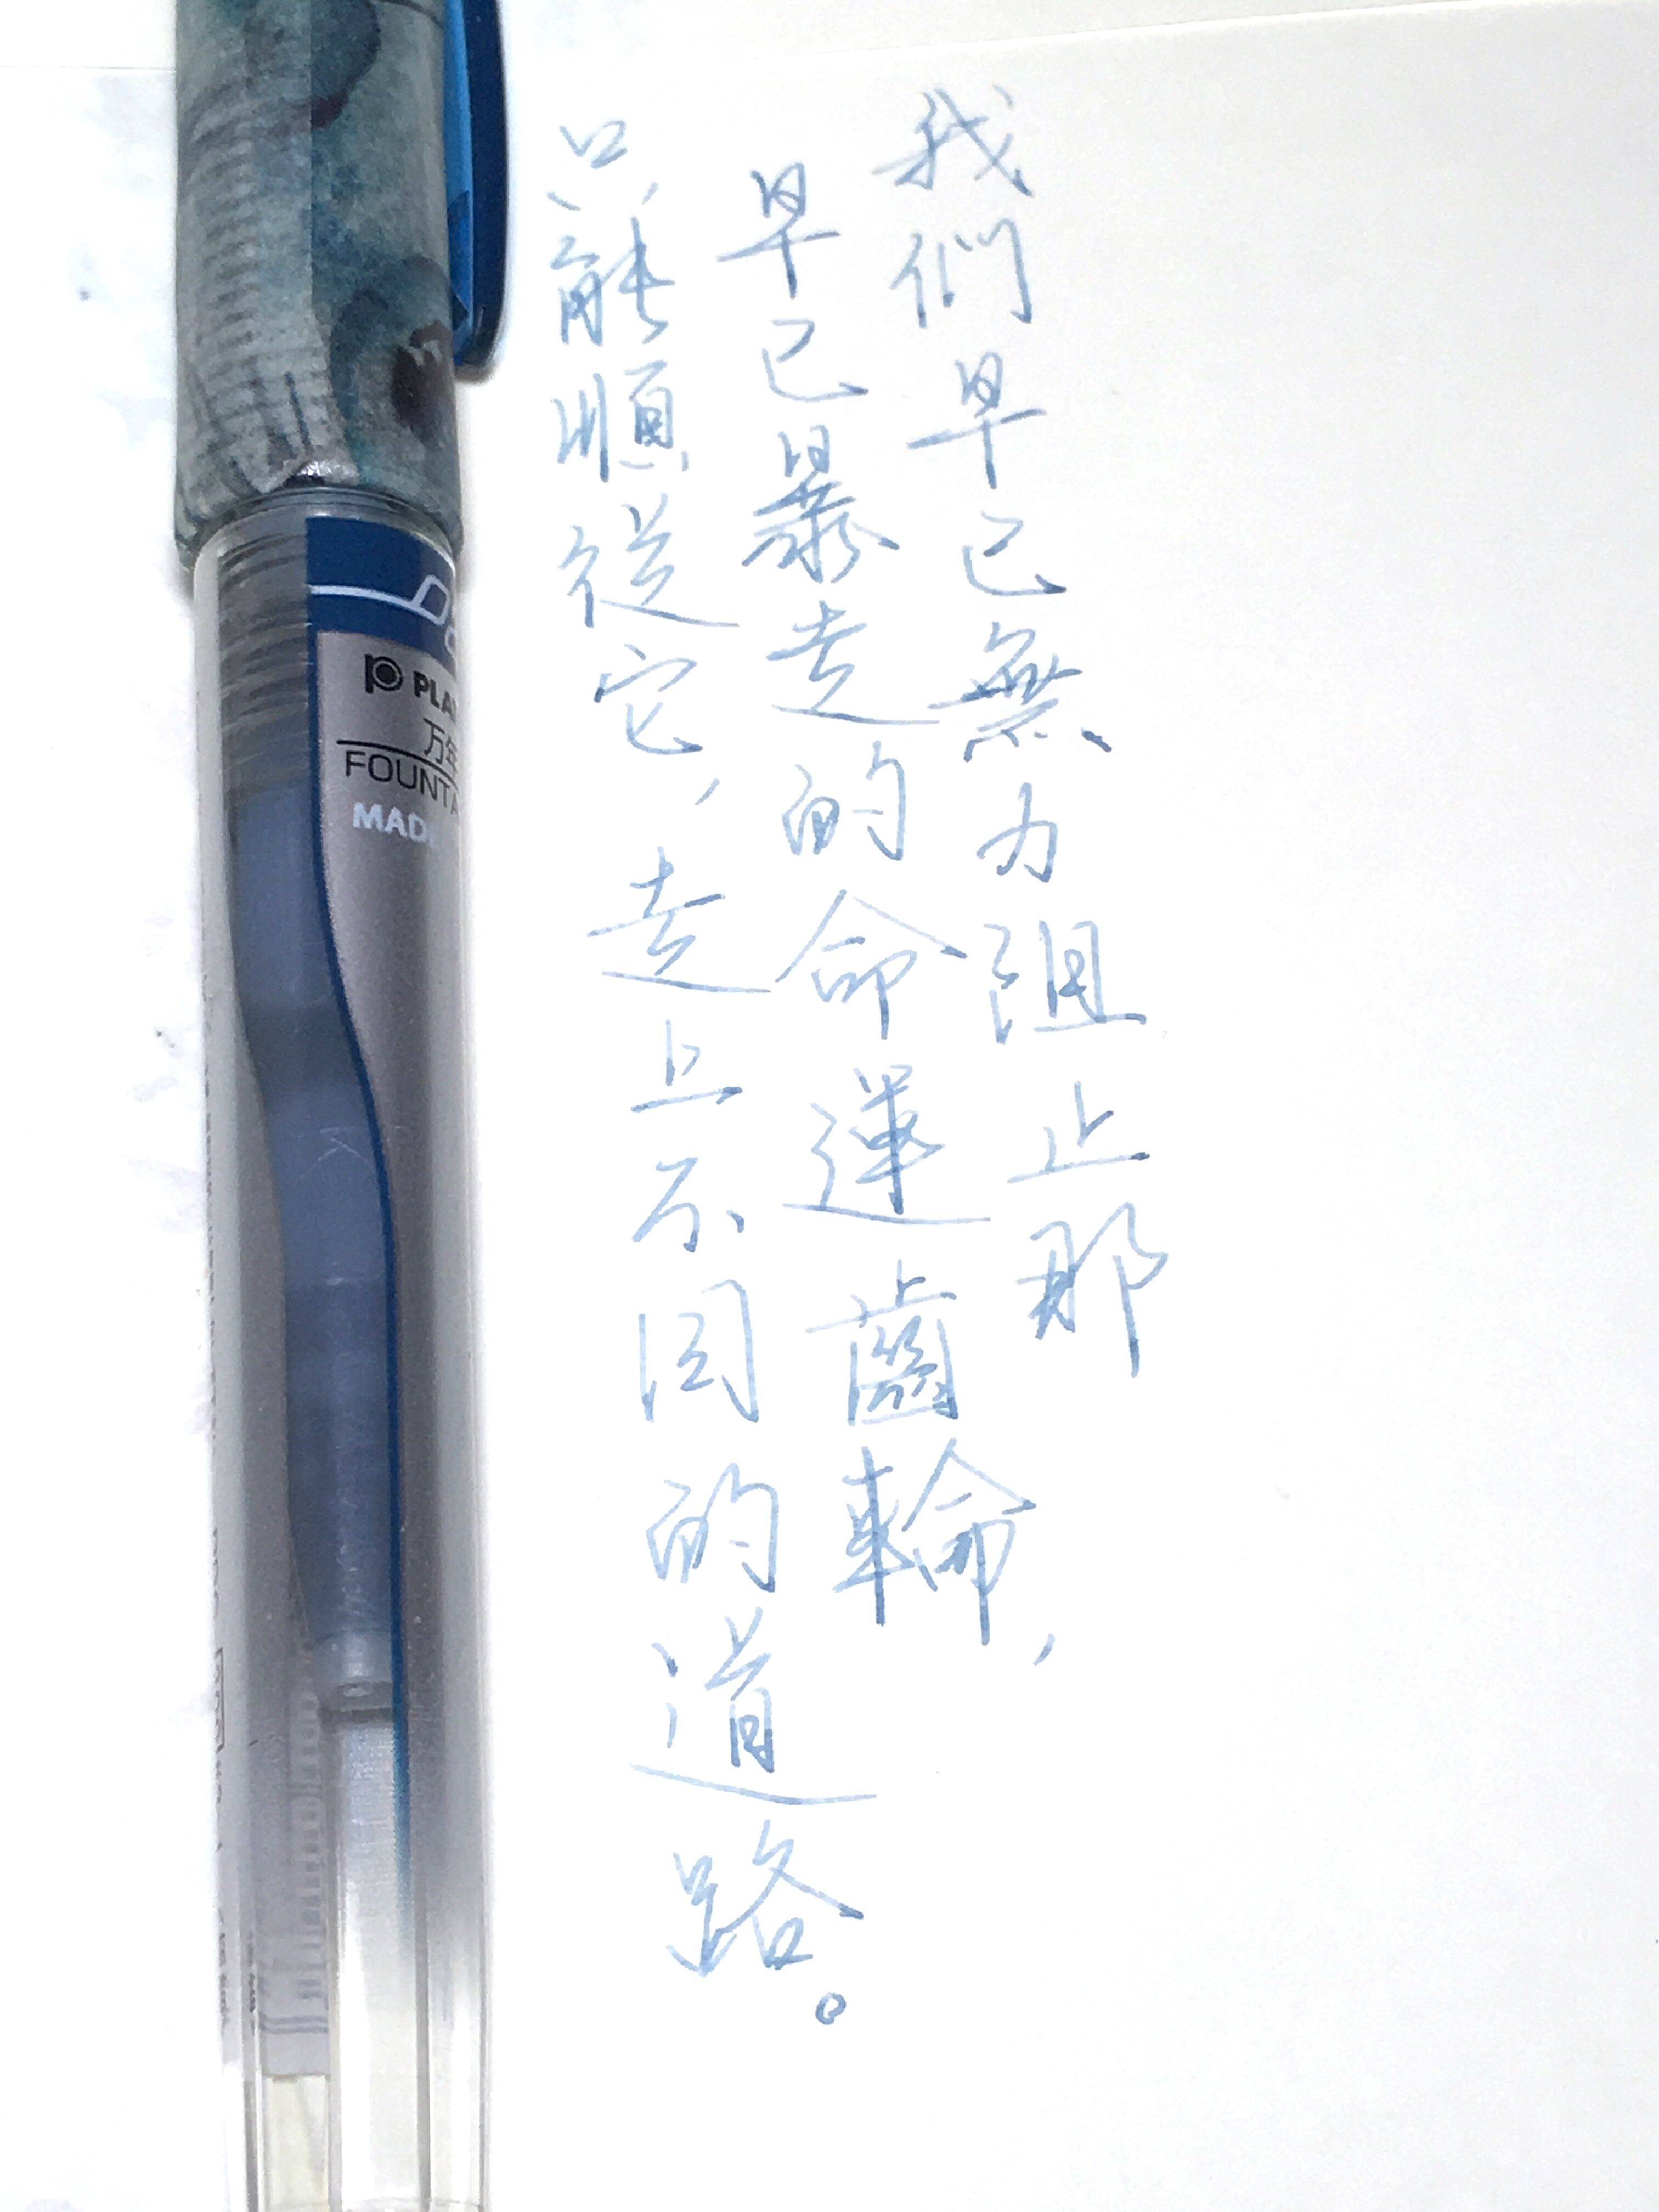 我們早已無力阻止那
早已暴走的命運齒輪，
只能順從它，走上不同的道路。
PLA
万年
FOUNTA
MAD